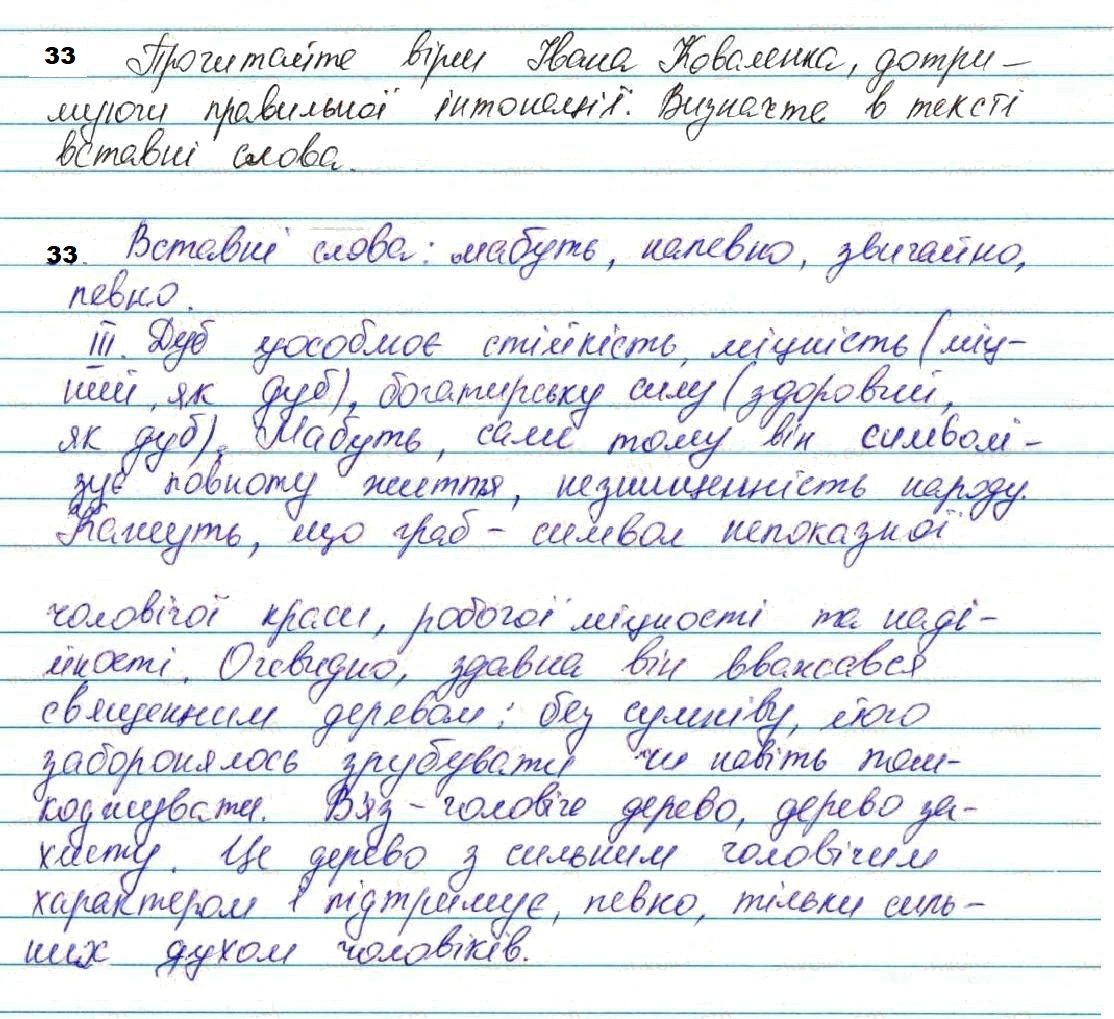 33 Прочитайте вірш Івана Коваленка, дотри-
муючи правильної інтонації. Визначте в тексті
вставні слова.
33. Вставні слова: мабуть, напевно, звичайно,
певно.
III. Дуб уособлює стійкість, міцність (міц-
ний, як дуб), богатирську силу (здоровий,
як дуб). Мабуть, саме тому він символі-
зує повноту життя, незнищенність народу.
Кажуть, що граб – символ непоказної
чоловічої краси, робочої міцності та наді-
йності. Очевидно, здавна він вважався
священним деревом: без сумніву, його
заборонялось зрубувати чи навіть пош-
коджувати. В'яз – чоловіче дерево, дерево за-
хисту. Це дерево з сильним чоловічим
характером і підтримує, певно, тільки силь-
них духом чоловіків.